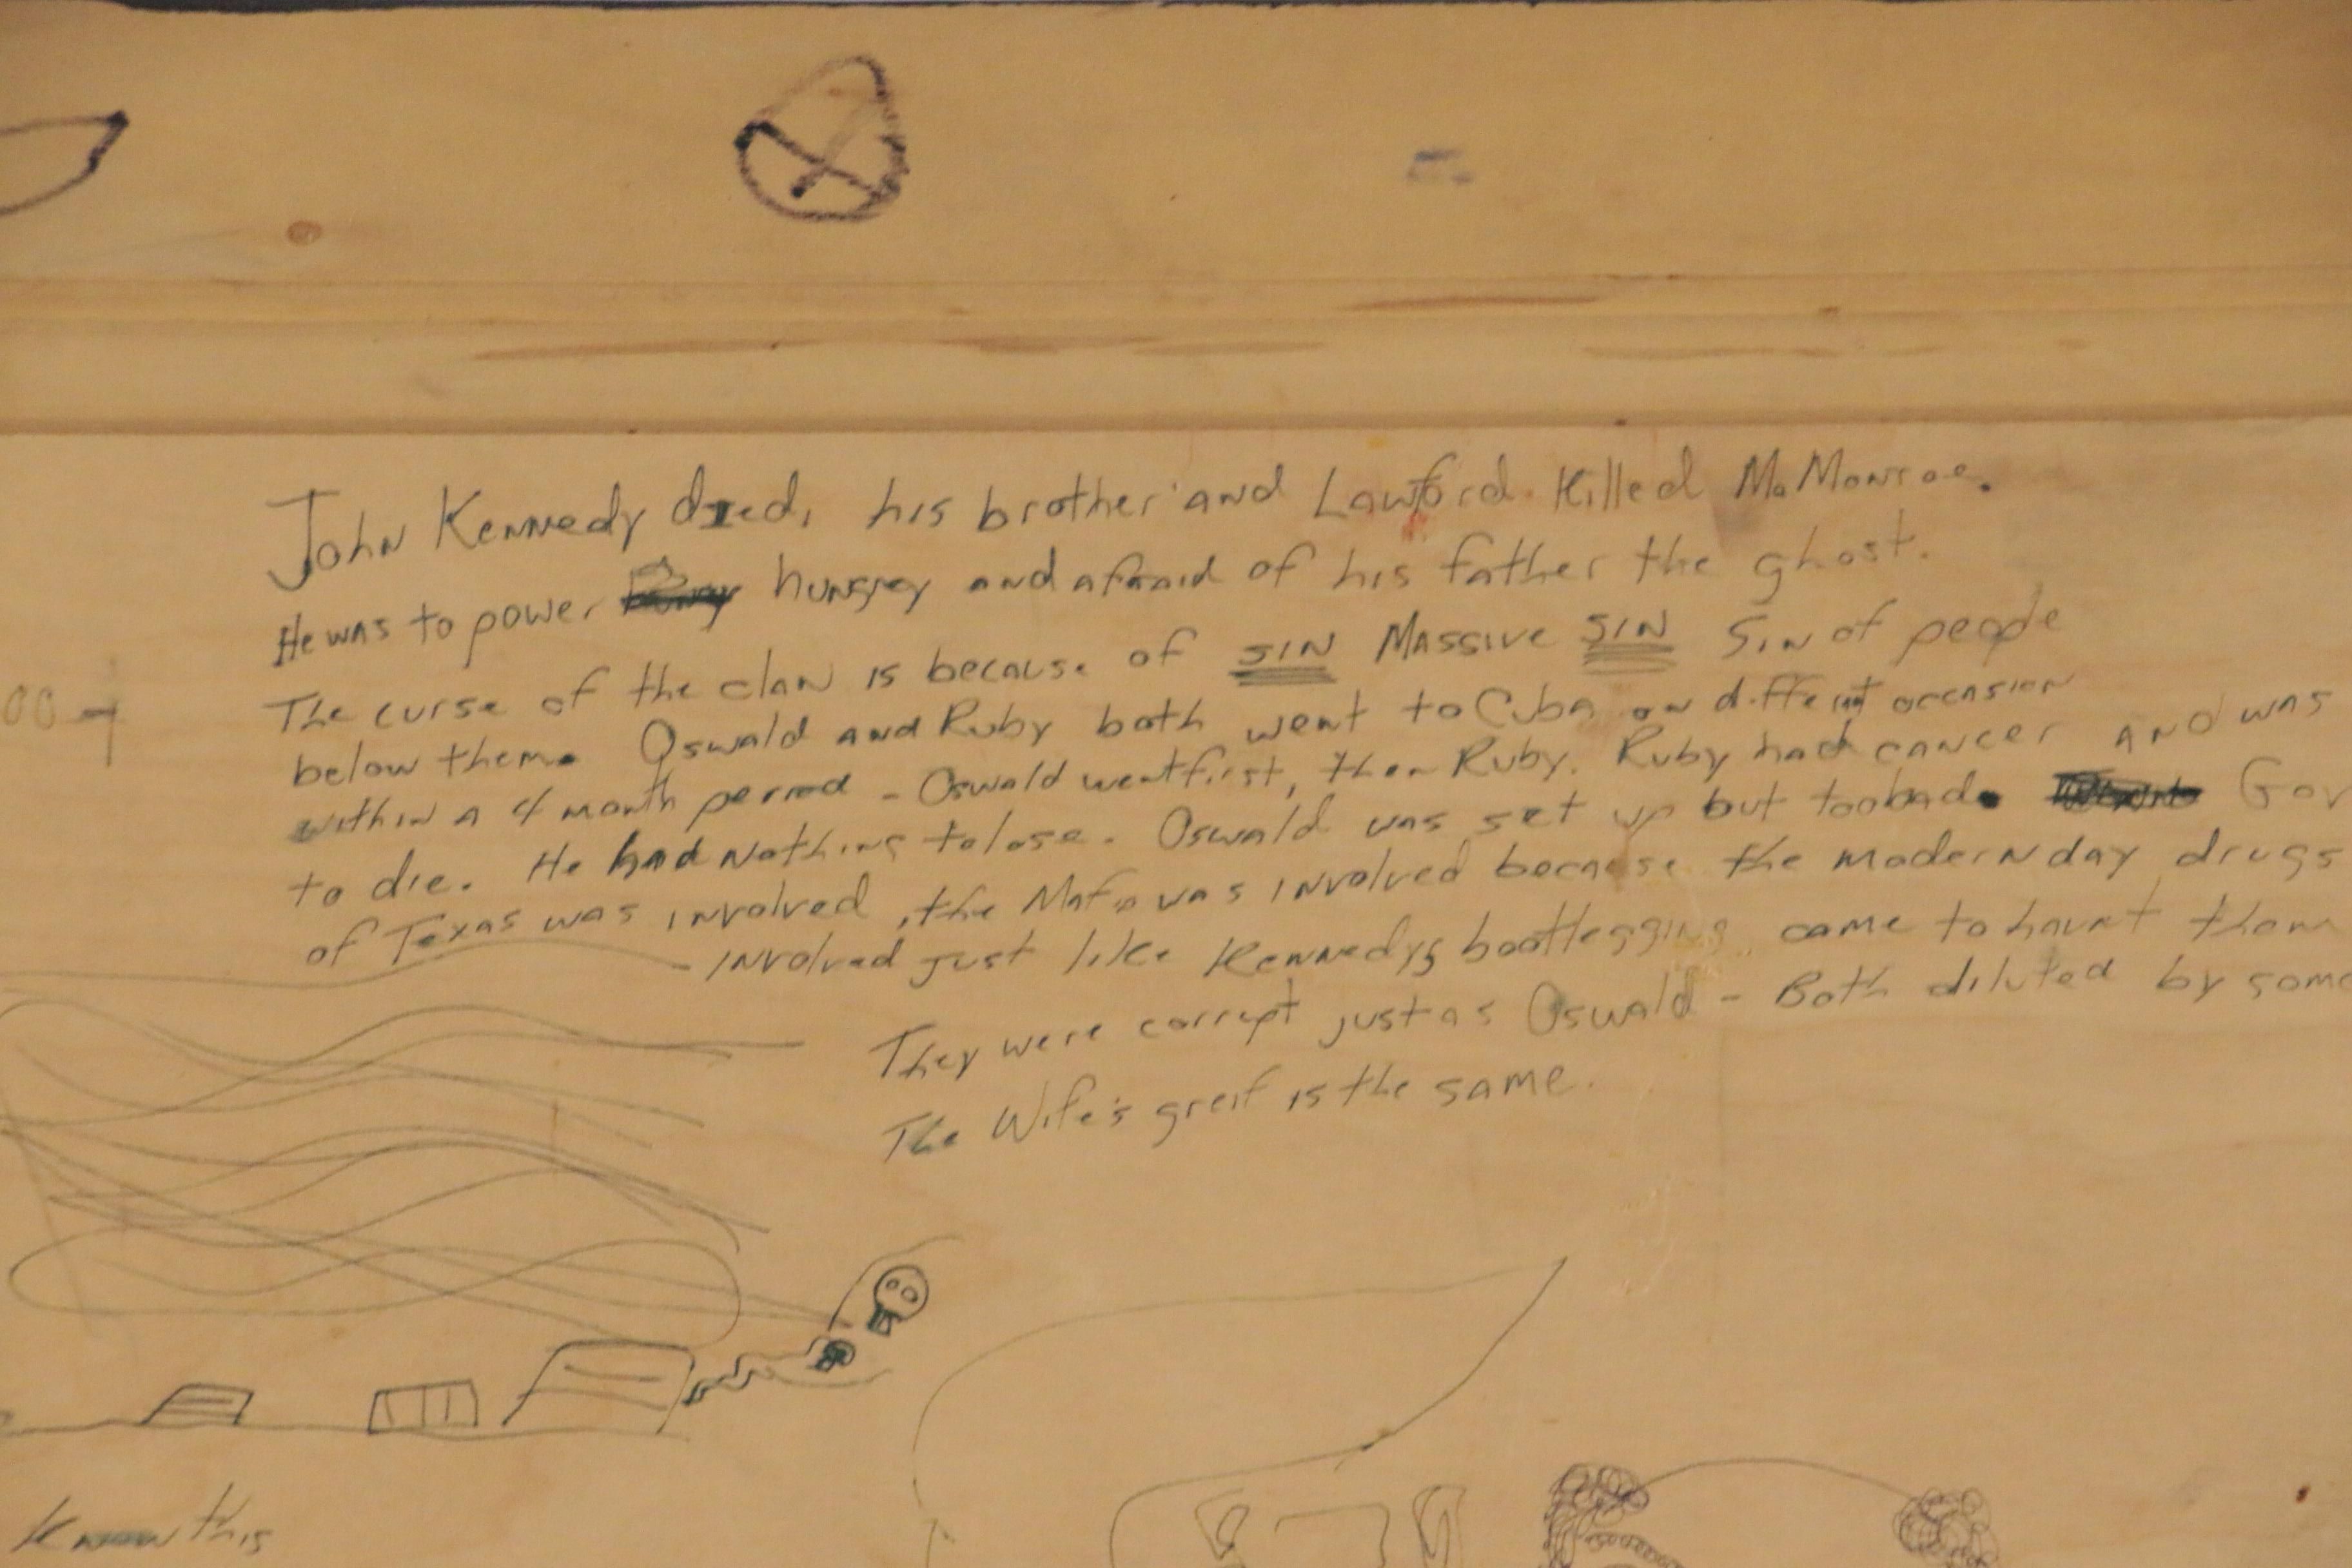 John Kennedy died, his brother and Lawford Killed M. Monroe.
He was to power hungrey and afraid of his father the ghost.
The curse of the clan is because of SIN Massive SIN Sin of people
below them. Oswald and Ruby both went to Cuba on different occasion
within a 4 month period - Oswald went first, then Ruby. Ruby had cancer and was
to die. He had nothing to lose. Oswald was set up but too bad. Gov
of Texas was involved, the Mafia was involved because the modern day drugs
involved just like Kennedys bootlegging came to haunt them
They were corrupt just as Oswald - Both diluted by some
The Wife's greif is the same.
Know this